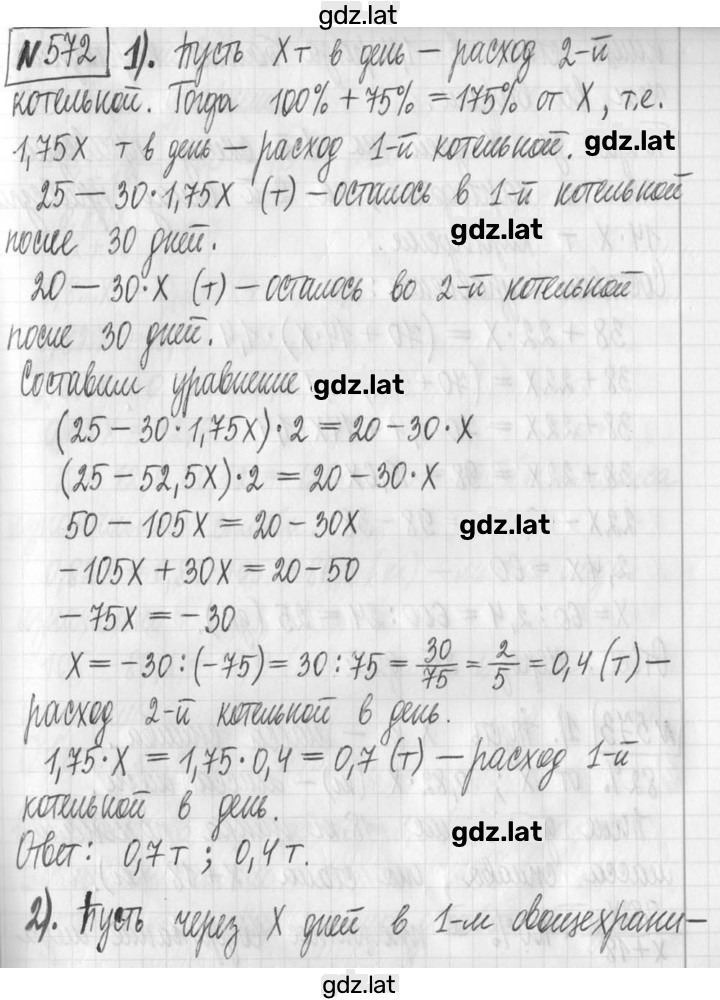 gdz.lat
№572 1). Пусть X т в день — расход 2-й
котельной. Тогда 100% + 75% = 175% от X, т.е.
1,75X т в день — расход 1-й котельной. gdz.lat
25 — 30·1,75X (т) — осталось в 1-й котельной
после 30 дней. gdz.lat
20 — 30·X (т) — осталось во 2-й котельной
после 30 дней.
Составим уравнение. gdz.lat
(25 — 30·1,75X)·2 = 20 — 30·X
(25 — 52,5X)·2 = 20 — 30·X
50 — 105X = 20 — 30X gdz.lat
—105X + 30X = 20 — 50
— 75X = — 30
X = —30 : (—75) = 30 : 75 = 30/75 = 2/5 = 0,4 (т) —
расход 2-й котельной в день.
1,75·X = 1,75·0,4 = 0,7 (т) — расход 1-й
котельной в день.
Ответ: 0,7 т ; 0,4 т. gdz.lat
2). Пусть через X дней в 1-м овощехрани-
gdz.lat